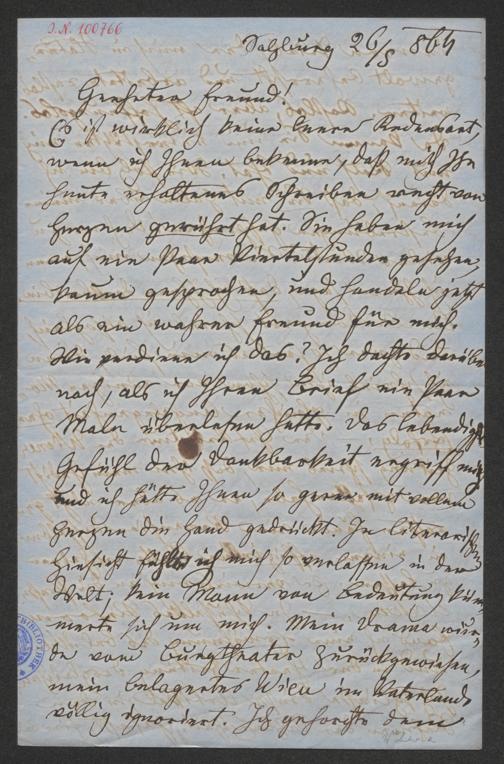 I.N. 100766
Salzburg 26/5 864
Geehrter Freund!
Es ist wirklich keine leere Redensart,
wenn ich Ihnen bekenne, daß mich Ihr
heute erhaltenes Schreiben recht von
Herzen gerührt hat. Sie haben mich
auf ein Paar Viertelstunden gesehen,
kaum gesprochen, und handeln jetzt
als ein wahrer Freund für mich.
Wie verdiene ich das? Ich dachte darüber
nach, als ich Ihren Brief ein Paar
Male überlesen hatte. Das lebendigste
Gefühl der Dankbarkeit ergriff mich
und ich hätte Ihnen so gerne mit vollem
Herzen die Hand gedrückt. In literarischer
Hinsicht fühlte ich mich so verlassen in der
Welt; kein Mann von Bedeutung küm-
merte sich um mich. Mein Drama wur-
de vom Burgtheater zurückgewiesen,
mein belagertes Wien im Vaterlande
völlig ignoriert. Ich gehorchte dem
BIBLIOTHEK